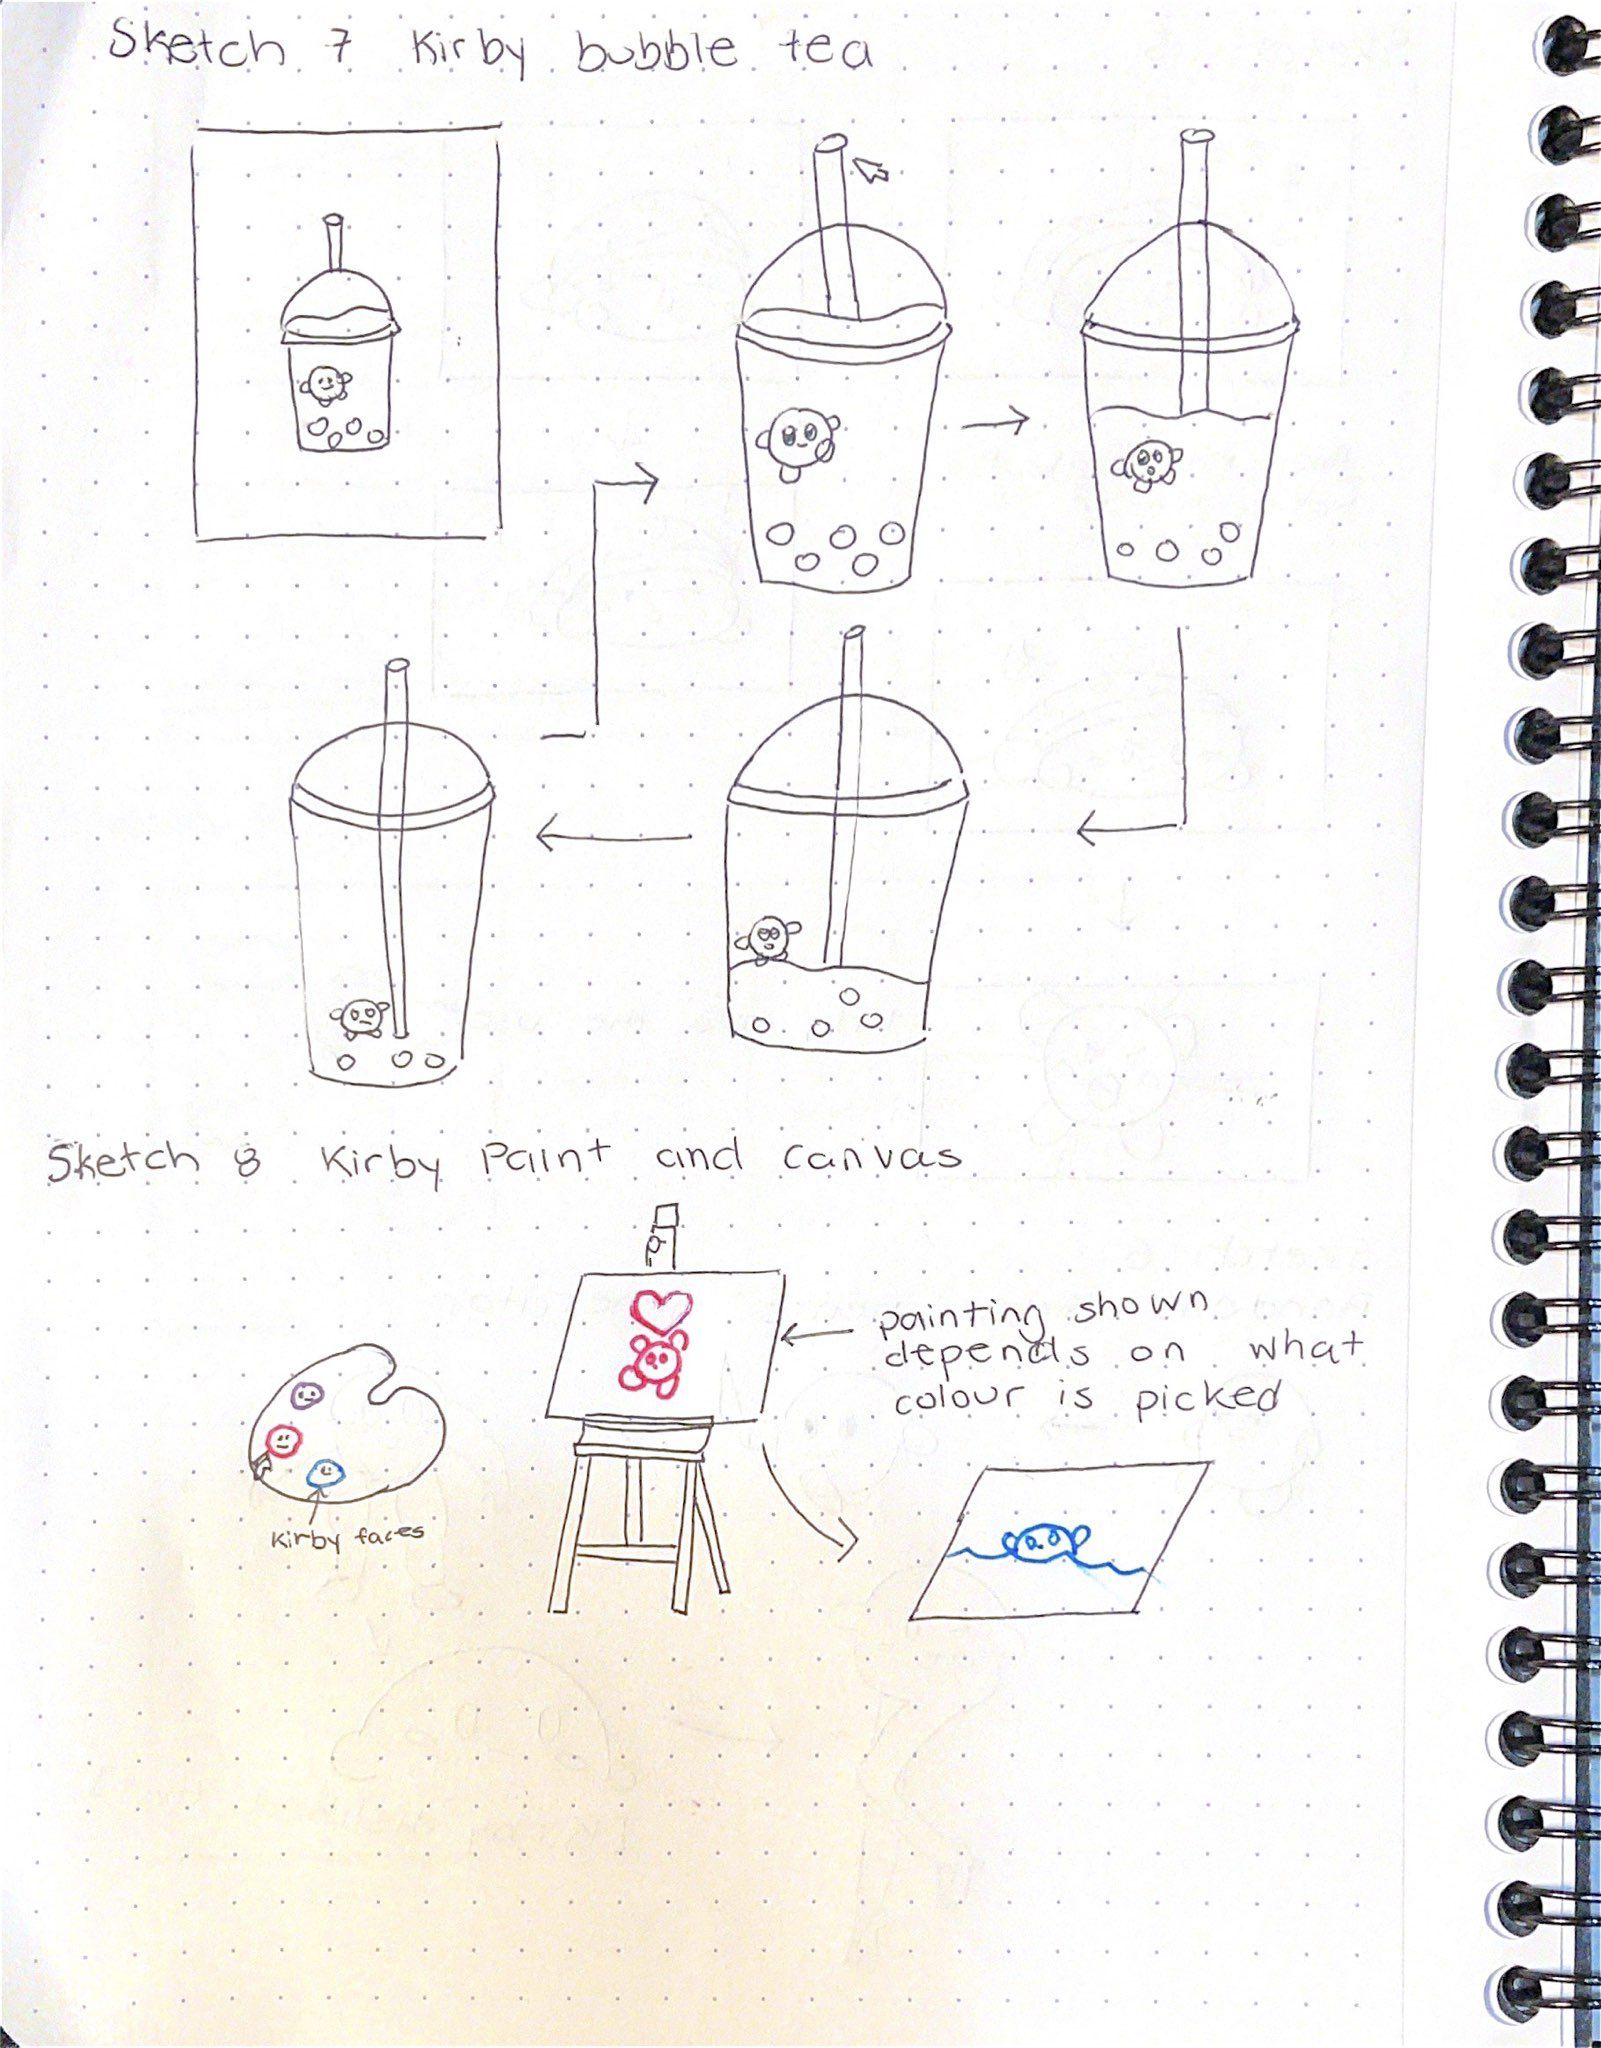 Sketch 7 Kirby bubble tea
Sketch 8 Kirby Paint and Canvas
painting shown
depends on what
colour is picked
Kirby faces